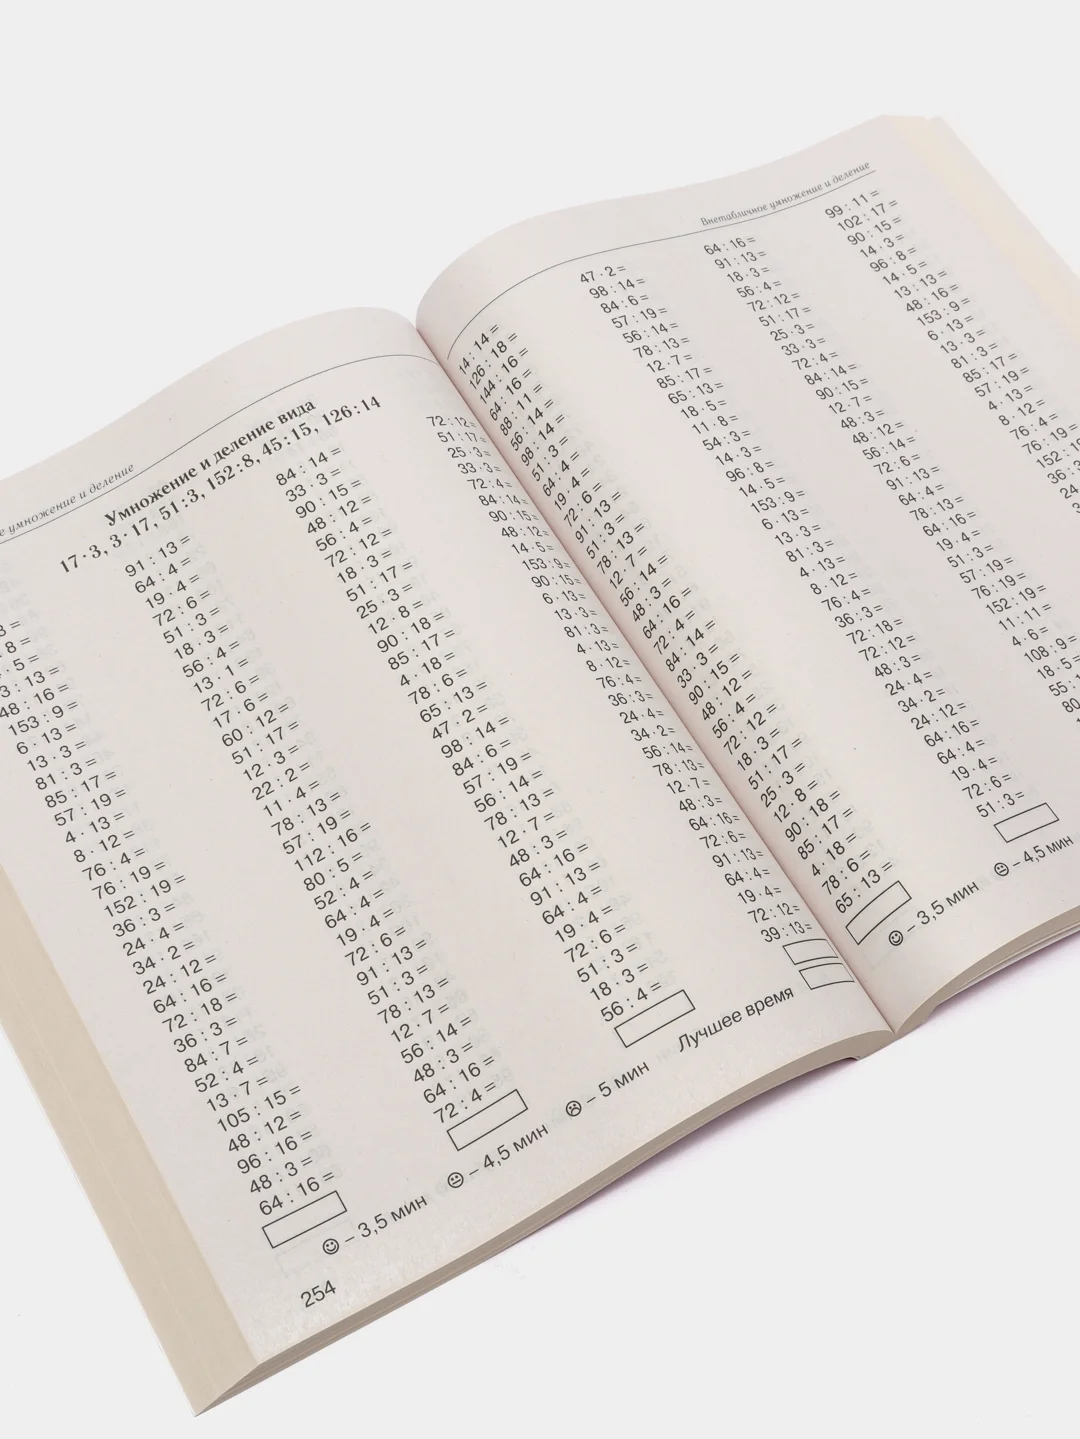 е умножение и деление
Умножение и деление вида
17 · 3, 3 · 17, 51 : 3, 152 : 8, 45 : 15, 126 : 14
48 : 16 =
153 : 9 =
6 · 13 =
13 · 3 =
81 : 3 =
85 : 17 =
57 : 19 =
4 · 13 =
8 · 12 =
76 : 4 =
76 : 19 =
152 : 19 =
36 : 3 =
24 · 4 =
34 · 2 =
24 : 12 =
64 : 16 =
72 : 18 =
36 : 3 =
84 : 7 =
52 : 4 =
13 · 7 =
105 : 15 =
48 : 12 =
96 : 16 =
48 : 3 =
64 : 16 =
91 : 13 =
64 : 4 =
19 · 4 =
72 : 6 =
51 : 3 =
18 · 3 =
56 : 4 =
13 · 1 =
72 : 6 =
17 · 6 =
60 : 12 =
51 : 17 =
12 · 3 =
22 : 2 =
11 · 4 =
78 : 13 =
57 : 19 =
112 : 16 =
80 : 5 =
52 : 4 =
64 : 4 =
19 · 4 =
72 : 6 =
91 : 13 =
51 : 3 =
78 : 13 =
12 · 7 =
56 : 14 =
48 : 3 =
64 : 16 =
72 : 4 =
84 : 14 =
33 · 3 =
90 : 15 =
48 : 12 =
56 : 4 =
72 : 12 =
18 · 3 =
51 : 17 =
25 · 3 =
12 · 8 =
90 : 18 =
85 : 17 =
4 · 18 =
78 : 6 =
65 : 13 =
47 · 2 =
98 : 14 =
84 : 6 =
57 : 19 =
56 : 14 =
78 : 13 =
12 · 7 =
48 : 3 =
64 : 16 =
91 : 13 =
64 : 4 =
19 · 4 =
72 : 6 =
51 : 3 =
18 · 3 =
56 : 4 =
72 : 12 =
51 : 17 =
25 · 3 =
33 · 3 =
72 : 4 =
84 : 14 =
90 : 15 =
48 : 12 =
14 · 5 =
153 : 9 =
90 : 15 =
6 · 13 =
13 · 3 =
81 : 3 =
4 · 13 =
8 · 12 =
76 : 4 =
36 : 3 =
24 · 4 =
34 · 2 =
56 : 14 =
78 : 13 =
12 · 7 =
48 : 3 =
64 : 16 =
72 : 6 =
91 : 13 =
64 : 4 =
19 · 4 =
72 : 12 =
39 : 13 =
☺ – 3,5 мин
😐 – 4,5 мин
☹ – 5 мин
Лучшее время
254
Внетабличное умножение и деление
14 : 14 =
126 : 18 =
144 : 16 =
64 : 16 =
88 : 11 =
56 : 14 =
98 : 14 =
51 : 3 =
64 : 4 =
19 · 4 =
72 : 6 =
91 : 13 =
51 : 3 =
78 : 13 =
12 · 7 =
56 : 14 =
48 : 3 =
64 : 16 =
72 : 4 =
84 : 14 =
33 · 3 =
90 : 15 =
48 : 12 =
56 : 4 =
72 : 12 =
18 · 3 =
51 : 17 =
25 · 3 =
12 · 8 =
90 : 18 =
85 : 17 =
4 · 18 =
78 : 6 =
65 : 13 =
47 · 2 =
98 : 14 =
84 : 6 =
57 : 19 =
56 : 14 =
78 : 13 =
12 · 7 =
85 : 17 =
65 : 13 =
18 · 5 =
11 · 8 =
54 : 3 =
14 · 3 =
96 : 8 =
14 · 5 =
153 : 9 =
6 · 13 =
13 · 3 =
81 : 3 =
4 · 13 =
8 · 12 =
76 : 4 =
36 : 3 =
72 : 18 =
72 : 12 =
48 : 3 =
24 · 4 =
34 · 2 =
24 : 12 =
64 : 16 =
64 : 4 =
19 · 4 =
72 : 6 =
51 : 3 =
64 : 16 =
91 : 13 =
18 · 3 =
56 : 4 =
72 : 12 =
51 : 17 =
25 · 3 =
33 · 3 =
72 : 4 =
84 : 14 =
90 : 15 =
12 · 7 =
48 : 3 =
48 : 12 =
56 : 14 =
72 : 6 =
91 : 13 =
64 : 4 =
78 : 13 =
64 : 16 =
19 · 4 =
51 : 3 =
57 : 19 =
76 : 19 =
152 : 19 =
11 · 11 =
4 · 6 =
108 : 9 =
18 · 5 =
99 : 11 =
102 : 17 =
90 : 15 =
14 · 3 =
96 : 8 =
14 · 5 =
13 : 13 =
48 : 16 =
153 : 9 =
6 · 13 =
13 · 3 =
81 : 3 =
85 : 17 =
57 : 19 =
4 · 13 =
8 · 12 =
76 : 4 =
76 : 19 =
☺ – 3,5 мин
😐 – 4,5 мин